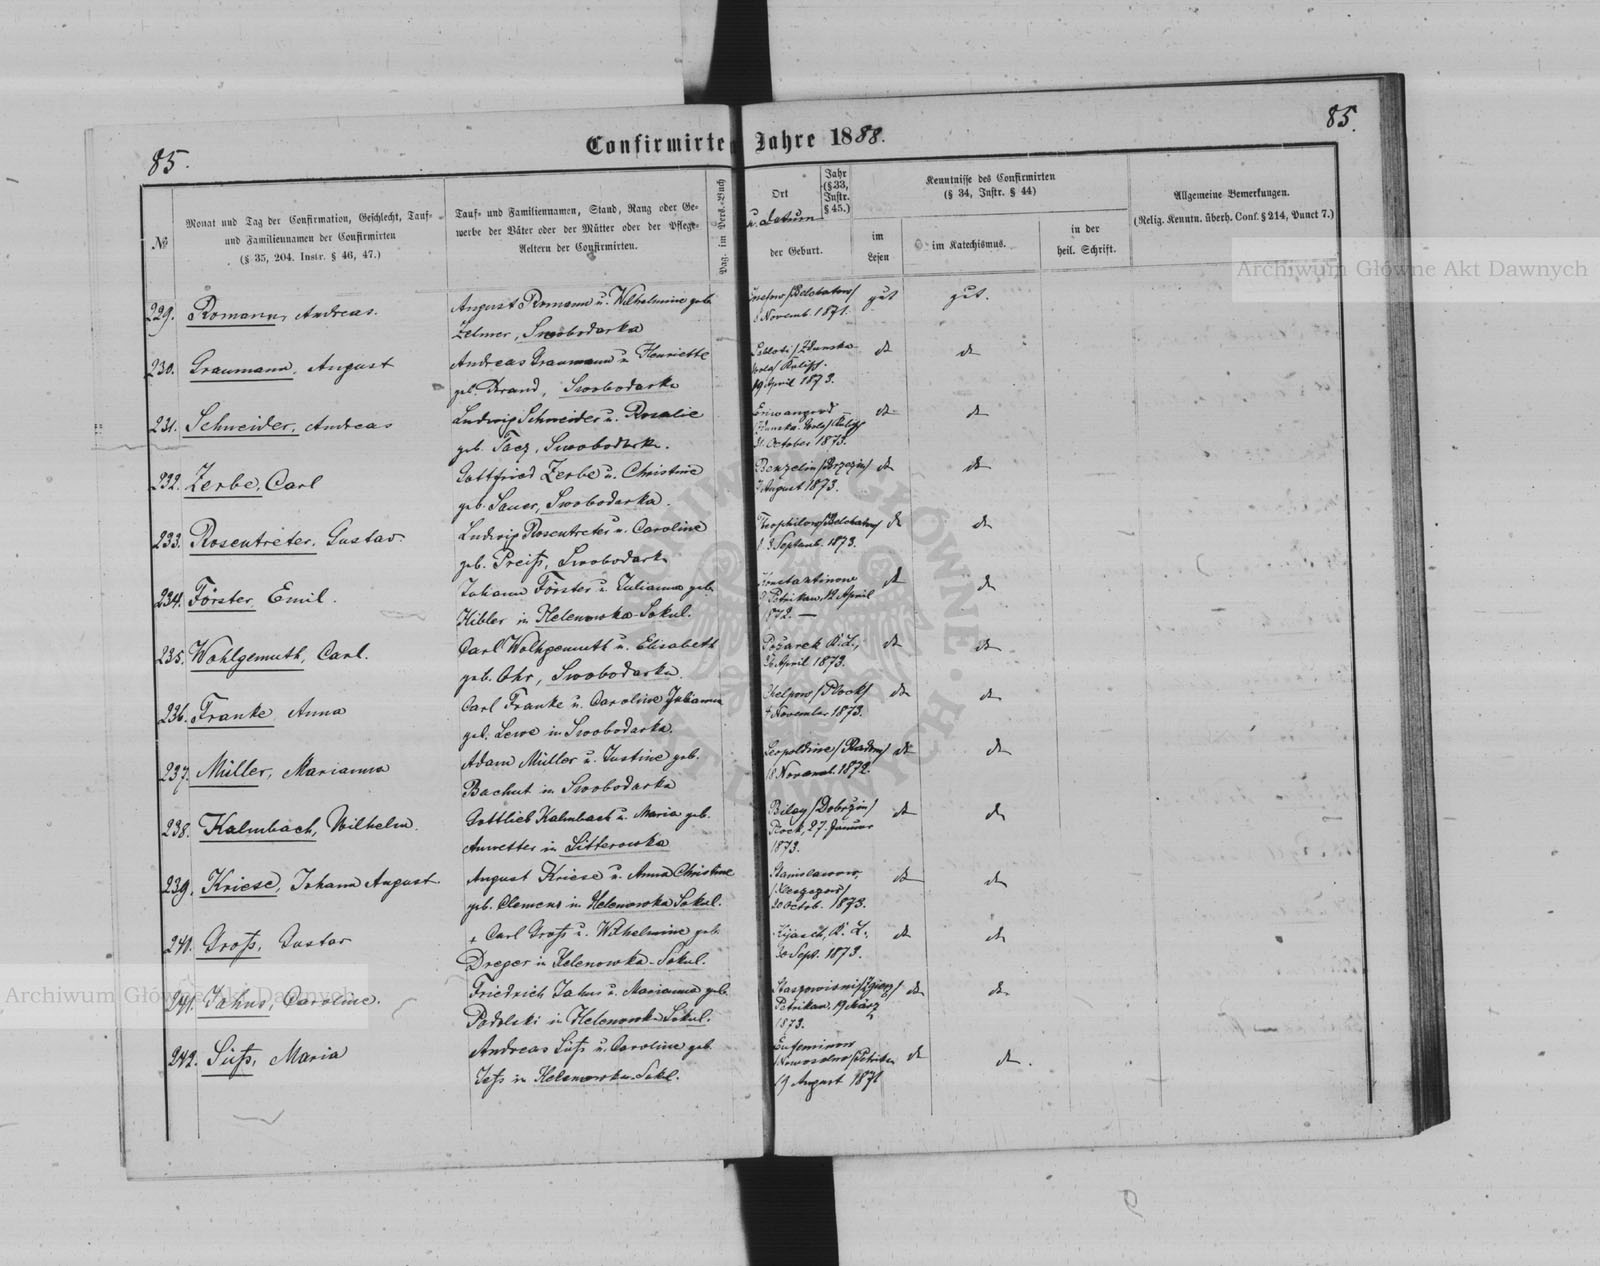 85.
85.
Confirmirte Jahre 1888.
№
Monat und Tag der Confirmation, Geschlecht, Tauf-
und Familiennamen der Confirmirten
(§ 35, 204. Instr. § 46, 47.)
Tauf- und Familiennamen, Stand, Rang oder Ge-
werbe der Väter oder der Mütter oder der Pflege-
Aeltern der Confirmirten.
Pag. im Pers.-Buch
Ort
u. Datum
der Geburt.
Jahr
(§ 33,
Instr.
§ 45.)
Kenntnisse des Confirmirten
(§ 34, Instr. § 44)
im
Lesen
im Katechismus.
in der
heil. Schrift.
Allgemeine Bemerkungen.
(Relig. Kenntn. überh. Conf. § 214, Punct 7.)
229. Romann, Andreas.
August Romann u. Wilhelmine geb.
Zelmer, Swobodarka
/Belchatow/
Novemb. 1871.
gut
gut.
230. Graumann, August
Andreas Graumann u. Henriette
geb. Brand, Swobodarka
/Zdunska
Wola/ Kalisch.
19 April 1873.
do
do
231. Schneider, Andreas
Ludwig Schneider u. Rosalie
geb. Tacz, Swobodarka.
Eriwangrod
Zdunska-Wola/Kalisch
31. October 1873.
do
do
232. Zerbe, Carl
Gottfried Zerbe u. Christine
geb. Sauer, Swobodarka.
Benzelin/Brzezin/
August 1873.
do
do
233. Rosentreter, Gustav.
Ludwig Rosentreter u. Caroline
geb. Preiß, Swobodarka
Theophilow/Belchatow/
3. Septemb. 1873.
do
do
234. Förster, Emil.
Johann Förster u. Julianna geb.
Hibler in Helenowka-Sokul.
Konstantinow
Petrikau, 12 April
1872. —
do
do
235. Wohlgemuth, Carl.
Carl Wolhgemuth u. Elisabeth
geb. Ohr, Swobodarka.
Pożarek K. L.,
26 April 1873.
do
do
236. Franke Anna
Carl Franke u. Caroline Julianna
geb. Lewe in Swobodarka.
Chelpow/Plock/
4 November 1873.
do
do
237. Müller, Marianna
Adam Müller u. Justine geb.
Bachut in Swobodarka
Leopoldine/Radom/
18 Novemb. 1872.
do
do
238. Kalmbach, Wilhelm.
Gottlieb Kalmbach u. Maria geb.
Anwetter in Litterowka
Bilay/Dobrzin/
Plock, 27. Januar
1873.
do
do
239. Kriese, Johann August
August Kriese u. Anna Christine
geb. Clemens in Helenowka Sokul.
Stanislawow,
20 Octob. 1873.
do
do
240. Groß, Gustav
+ Carl Groß u. Wilhelmine geb.
Dreger in Helenowka-Sokul.
Kijasch, K. L.
30 Sept. 1873.
do
do
241. Jahns, Caroline.
Friedrich Jahns u. Marianna geb.
Podolski in Helenowka Sokul.
/Zgierz/
Petrikau, 19 März
1873.
do
do
242. Süß, Maria
Andreas Süß u. Caroline geb.
Jeß in Helenowka-Sokul.
Eufeminow
/Petrikau
19 August 1871
do
do.
Archiwum Główne Akt Dawnych
Archiwum Główne Akt Dawnych